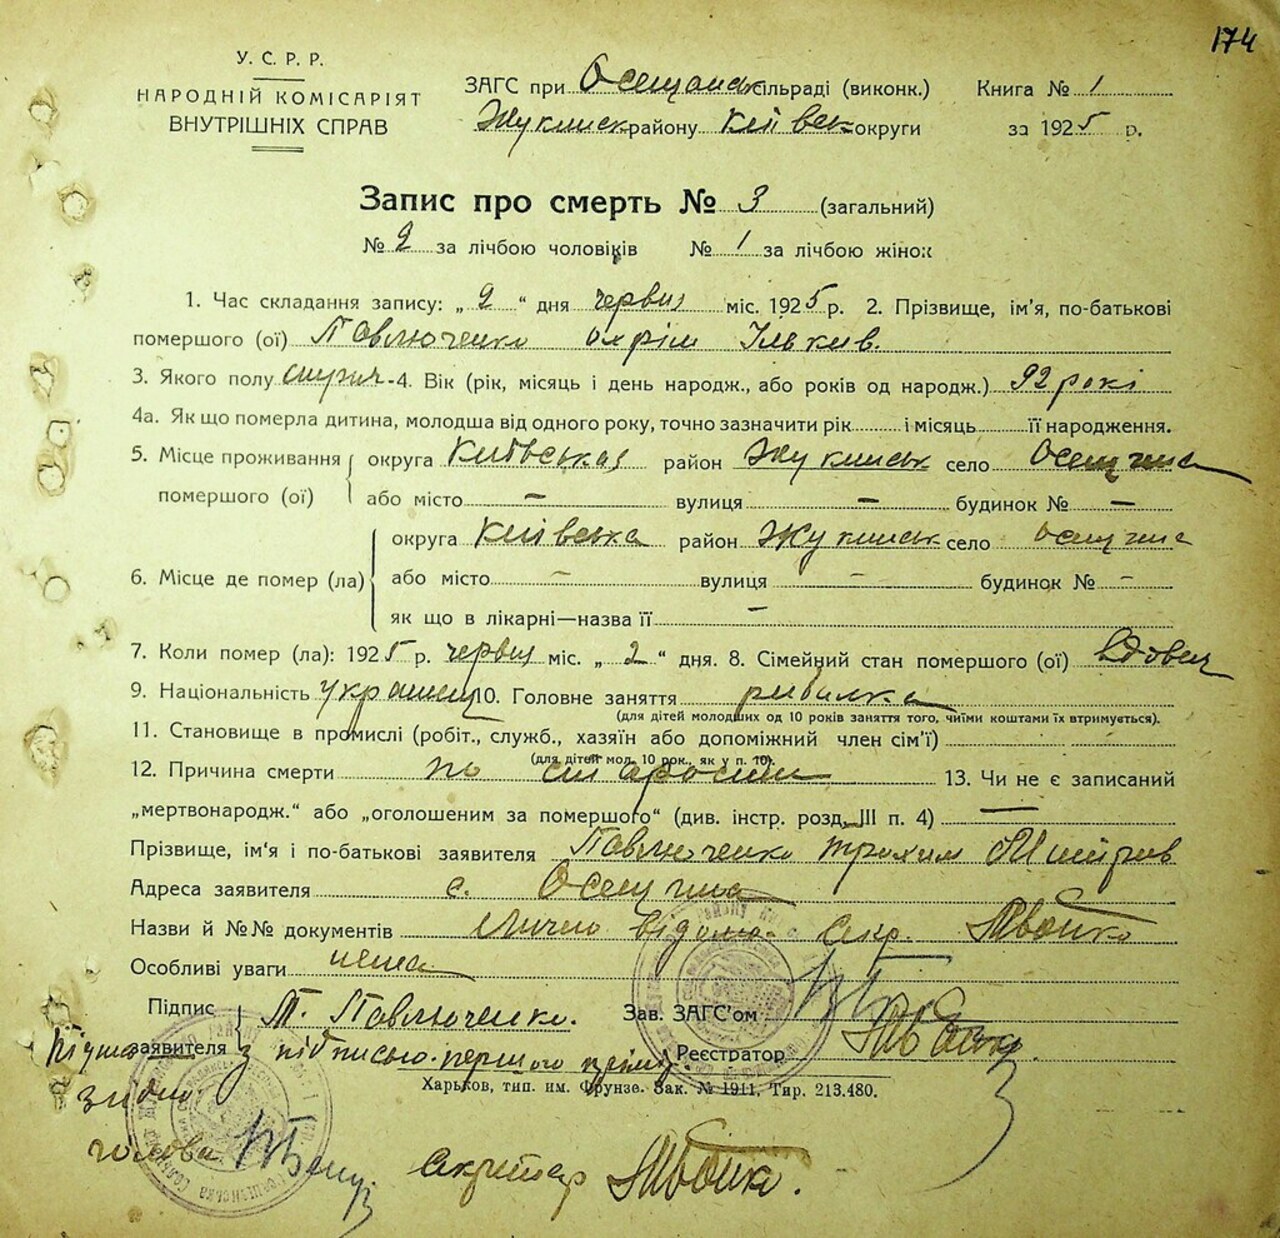 174
У. С. Р. Р.
НАРОДНІЙ КОМІСАРІЯТ
ВНУТРІШНІХ СПРАВ
ЗАГС при Осещанськ сільраді (виконк.) Книга № 1
Жукинськ району Київськ округи за 1925 р.
Запис про смерть № 3 (загальний)
№ 2 за лічбою чоловіків № 1 за лічбою жінок
1. Час складання запису: „ 2 “ дня червня міс. 1925 р. 2. Прізвище, ім'я, по-батькові
помершого (ої) Павлюченко Охрім Ільков.
3. Якого полу 4. Вік (рік, місяць і день народж., або років од народж.) 92 рокі
4а. Як що померла дитина, молодша від одного року, точно зазначити рік і місяць її народження.
5. Місце проживання помершого (ої) округа Київська район Жукинськ село Осещина
або місто — вулиця — будинок № —
6. Місце де помер (ла) округа Київська район Жукинськ село Осещина
або місто — вулиця — будинок № —
як що в лікарні—назва її —
7. Коли помер (ла): 1925 р. червня міс. „ 2 “ дня. 8. Сімейний стан помершого (ої) вдовец
9. Національність украінец 10. Головне заняття рибалка
(для дітей молодших од 10 років заняття того, чиїми коштами їх втримується).
11. Становище в промислі (робіт., служб., хазяїн або допоміжний член сім'ї)
(для дітей мол. 10 рок., як у п. 10).
12. Причина смерти по старости 13. Чи не є записаний
„мертвонародж.“ або „оголошеним за помершого“ (див. інстр. розд. III п. 4) —
Прізвище, ім'я і по-батькові заявителя Павлюченко Трохим
Адреса заявителя с. Осещина
Назви й №№ документів Лично відомо. Секр. Бойко
Особливі уваги нема
Підпис заявителя Т. Павлюченко. Зав. ЗАГС'ом
з підписью першого Реєстратор Бойко.
Харьков, тип. им. Фрунзе. Зак. № 1911, Тир. 213.480.
згідно
голова Секретар Бойко.